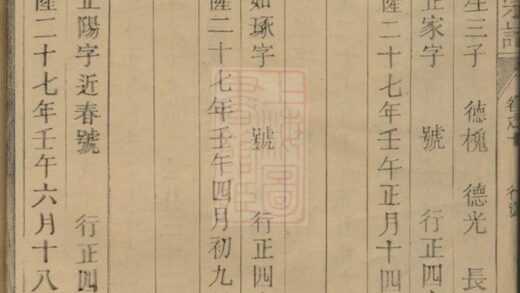 宗譜
生三子 德槐 德光 長
正家字 號 行正四
隆二十七年壬午正月十四
如琢字 號 行正四
隆二十七年壬午四月初九
正陽字近春號 行正四
隆二十七年壬午六月十八
上海圖書館藏